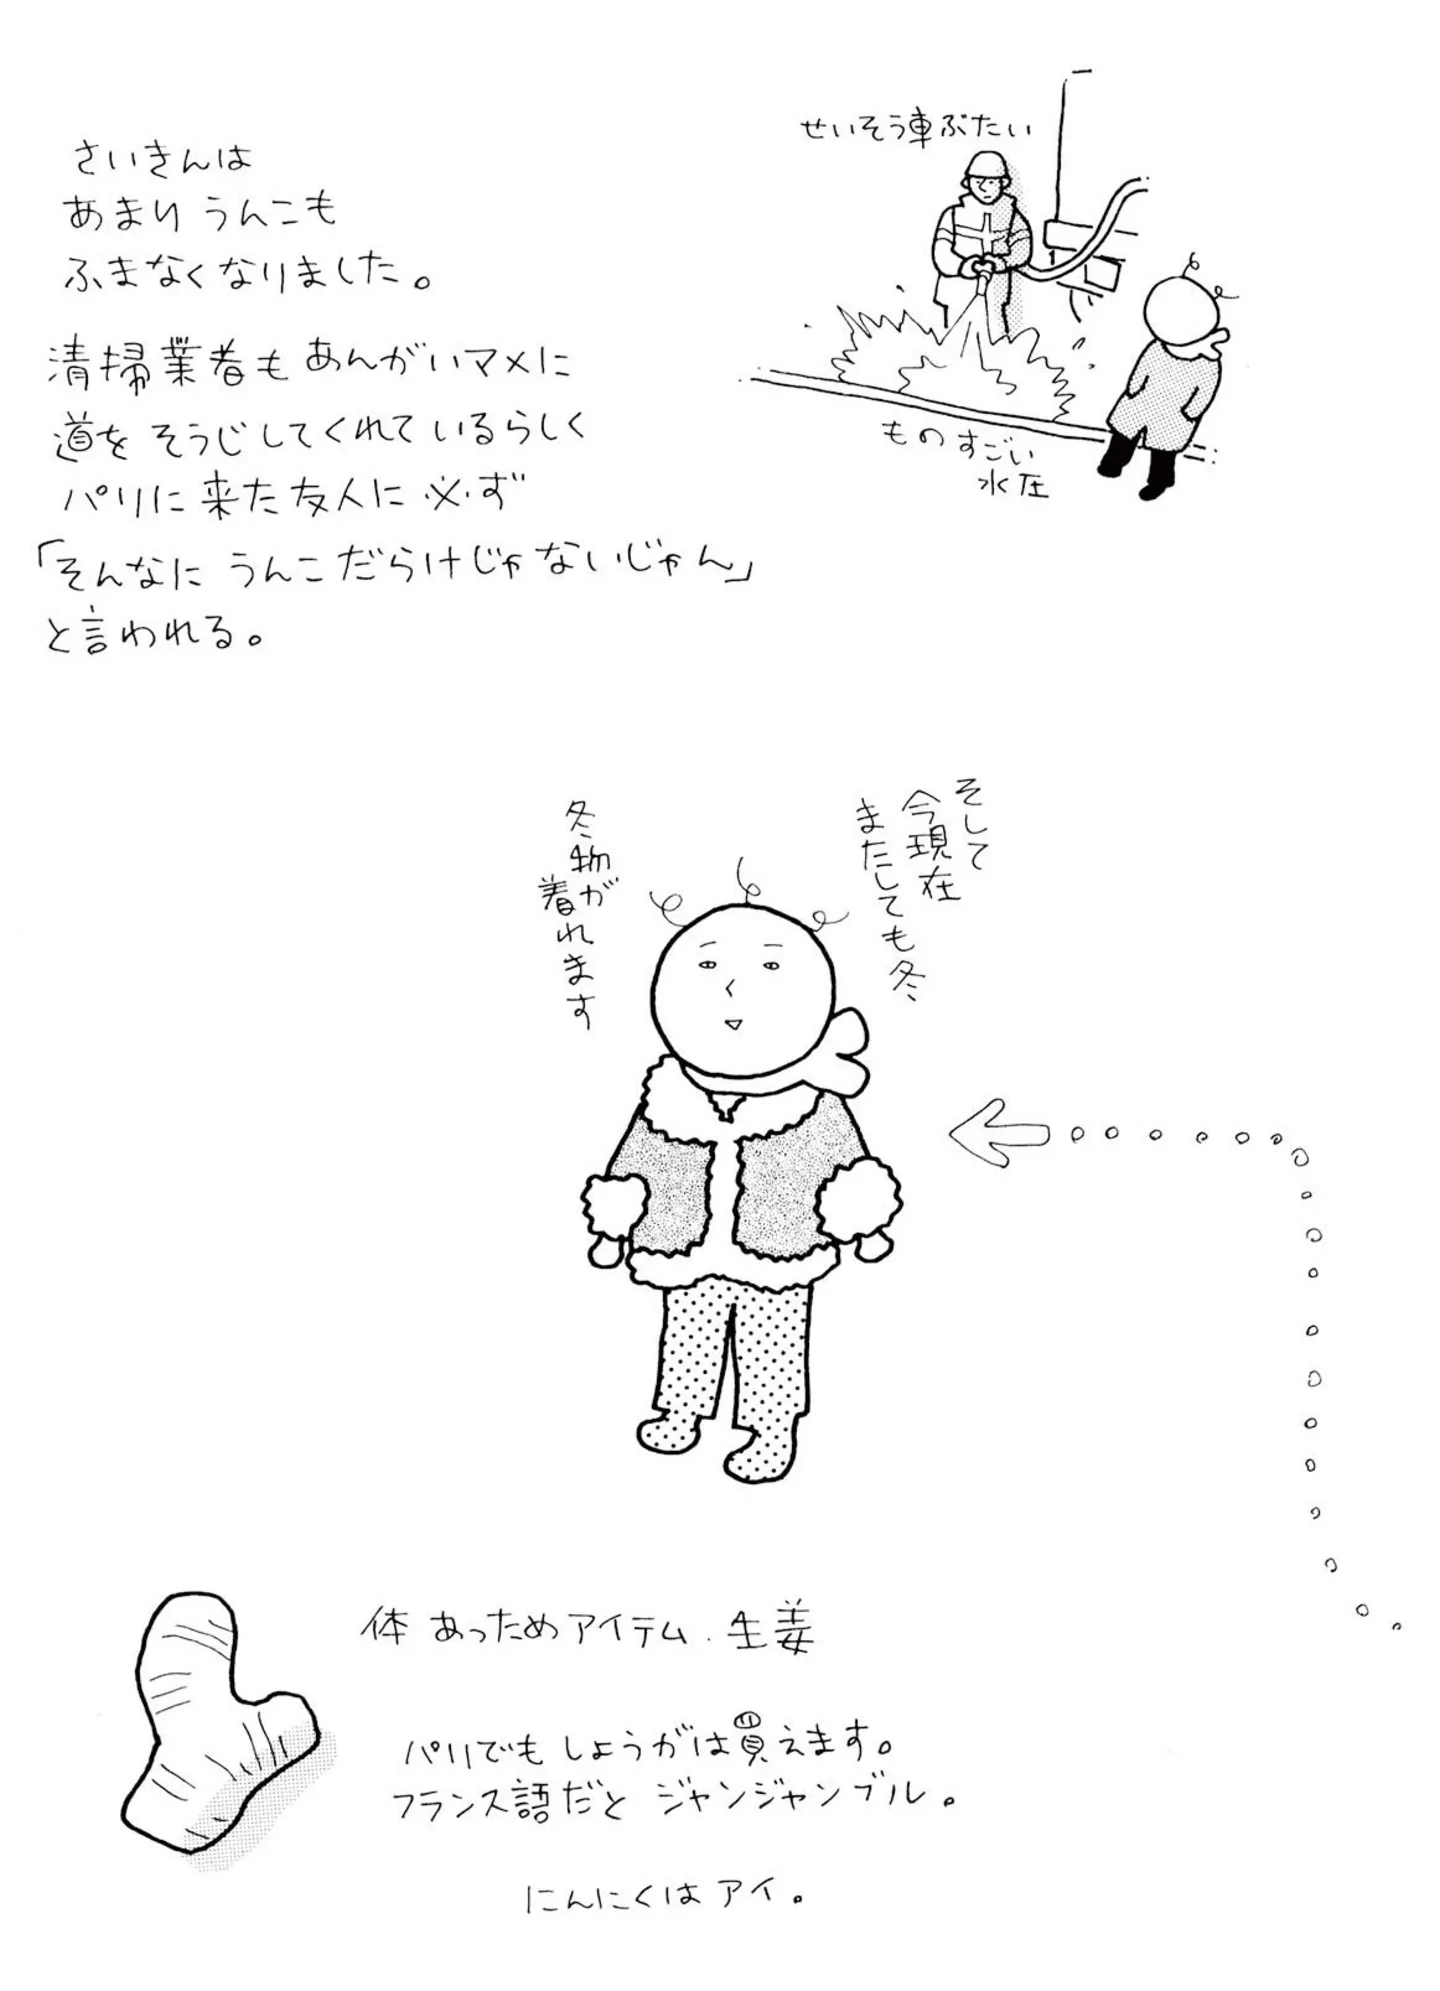 さいきんは
あまり うんこも
ふまなくなりました。
清掃業者も あんがいマメに
道を そうじしてくれているらしく
パリに 来た友人に 必ず
「そんなに うんこだらけじゃないじゃん」
と言われる。
せいそう車ぶたい
ものすごい
水圧
そして
今現在
またしても冬
冬物が
着れます
体 あっためアイテム.生姜
パリでも しょうがは買えます。
フランス語だと ジャンジャンブル。
にんにくはアイ。